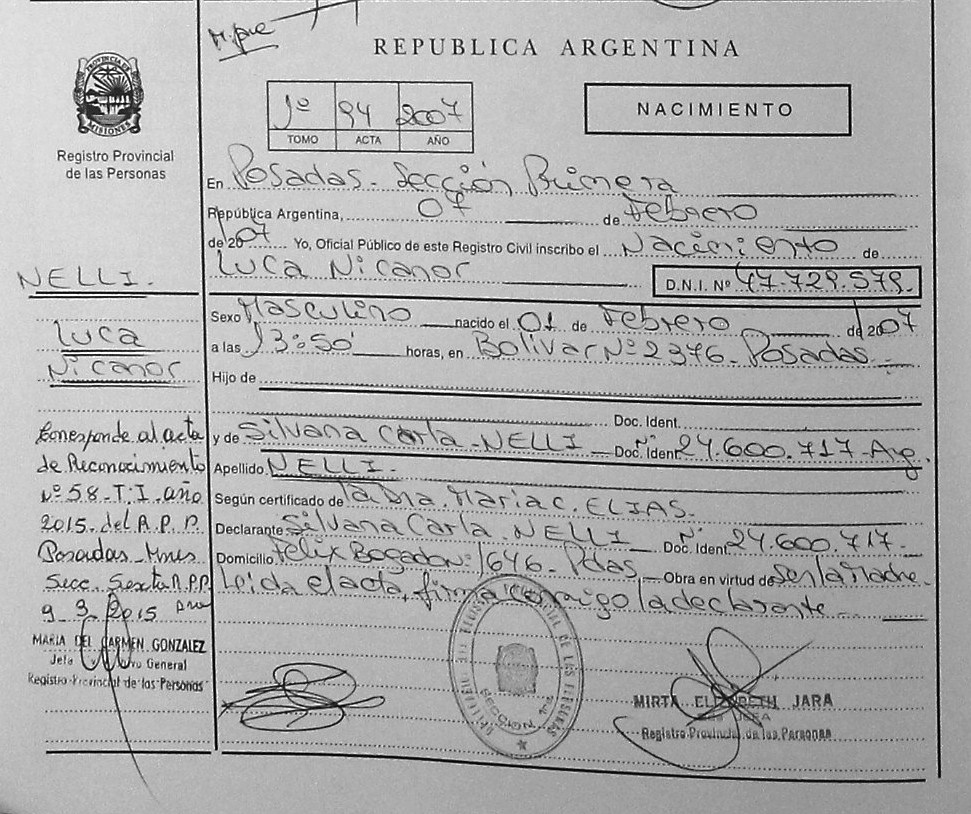 REPUBLICA ARGENTINA
PROVINCIA DE MISIONES
Registro Provincial
de las Personas
1º 94 2007
TOMO ACTA AÑO
NACIMIENTO
En Posadas - Sección Primera
República Argentina, 07 de Febrero
de 2007 Yo, Oficial Público de este Registro Civil inscribo el Nacimiento de
Luca Nicanor D.N.I. Nº 47.729.579.
Sexo Masculino nacido el 01 de Febrero de 2007
a las 13:50 horas, en Bolivar Nº 2376 - Posadas
Hijo de
Doc. Ident.
y de Silvana Carla - NELLI Doc. Ident Nº 24.600.717 - Arg.
Apellido NELLI.
Según certificado de la Dra. Maria C. ELIAS.
Declarante Silvana Carla NELLI Doc. Ident Nº 24.600.717
Domicilio Felix Bogado Nº 1646 - Pdas, Obra en virtud de ser la Madre.
Leida el acta, firma conmigo la declarante
NELLI.
Luca
Nicanor
Corresponde al acta
de Reconocimiento
Nº 58 - T. I. año
2015 - del R.P.P.
Posadas - Mnes
Secc. Sexta R.P.P.
9 3 2015
MARIA DEL CARMEN GONZALEZ
General
Registro Provincial de las Personas
PROVINCIAL DE LAS PERSONAS
SECCION 1ra
MIRTA ELIZABETH JARA
Registro Provincial de las Personas